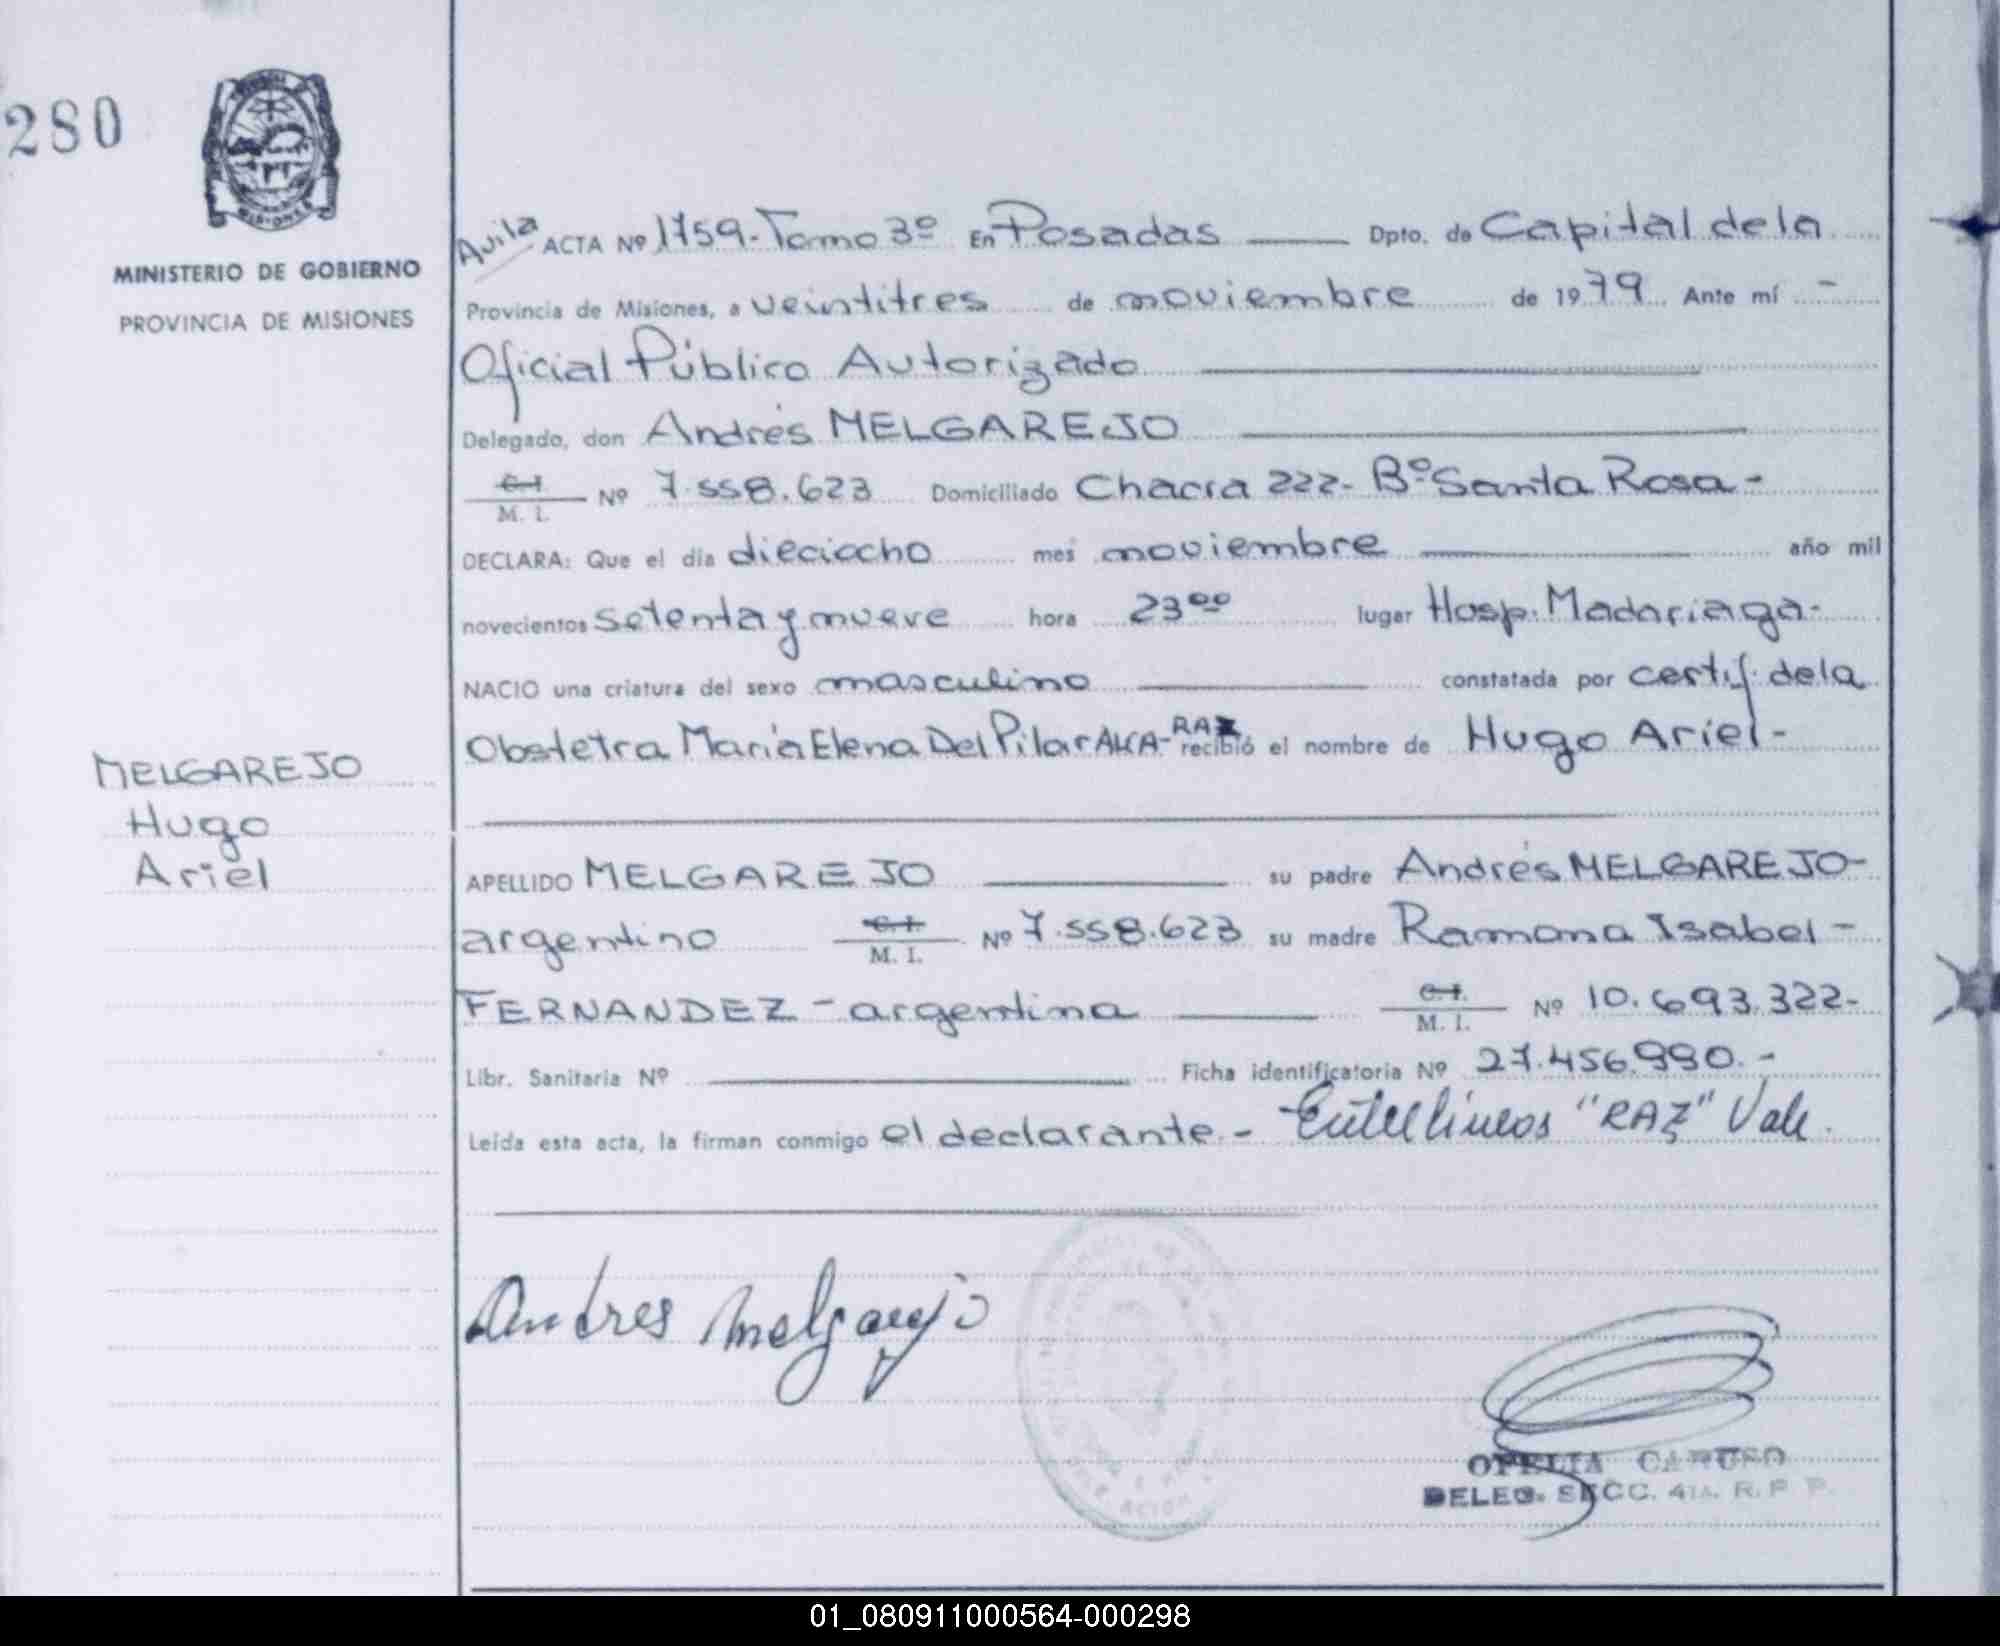 280
MINISTERIO DE GOBIERNO
PROVINCIA DE MISIONES
Avila ACTA Nº 1759-Tomo 3º En Posadas Dpto. de Capital de la
Provincia de Misiones, a veintitres de noviembre de 1979 Ante mí -
Oficial Público Autorizado
Delegado, don Andrés MELGAREJO
C.I. M. I. Nº 7.558.623 Domiciliado Chacra 222- Bº Santa Rosa-
DECLARA: Que el día dieciocho mes noviembre año mil
novecientos setenta y nueve hora 23ºº lugar Hosp. Madariaga-
NACIO una criatura del sexo masculino constatada por certif. de la
Obstetra María Elena Del Pilar ALCA-RAZ recibió el nombre de Hugo Ariel-
MELGAREJO
Hugo
Ariel
APELLIDO MELGAREJO su padre Andrés MELGAREJO-
argentino C.I. M. I. Nº 7.558.623 su madre Ramona Isabel-
FERNANDEZ - argentina C.I. M. I. Nº 10.693.322-
Libr. Sanitaria Nº Ficha identificatoria Nº 27.456.990.-
Leída esta acta, la firman conmigo el declarante - Entrelíneas "RAZ" Vale.
Andres Melgarejo
OFELIA CARUSO
DELEG. SECC. 4ta. R. P. P.
01_080911000564-000298